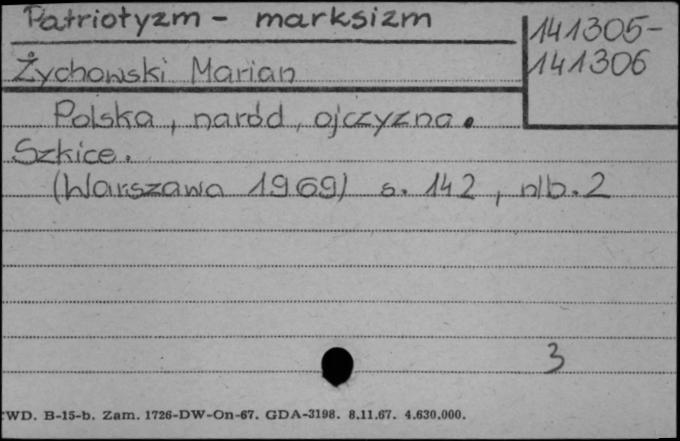 Patriotyzm - marksizm
141305-
141306
Żychowski Marian
Polska, naród, ojczyzna.
Szkice.
(Warszawa 1969) s. 142, nlb. 2
3
WD. B-15-b. Zam. 1726-DW-On-67. GDA-3198. 8.11.67. 4.630.000.